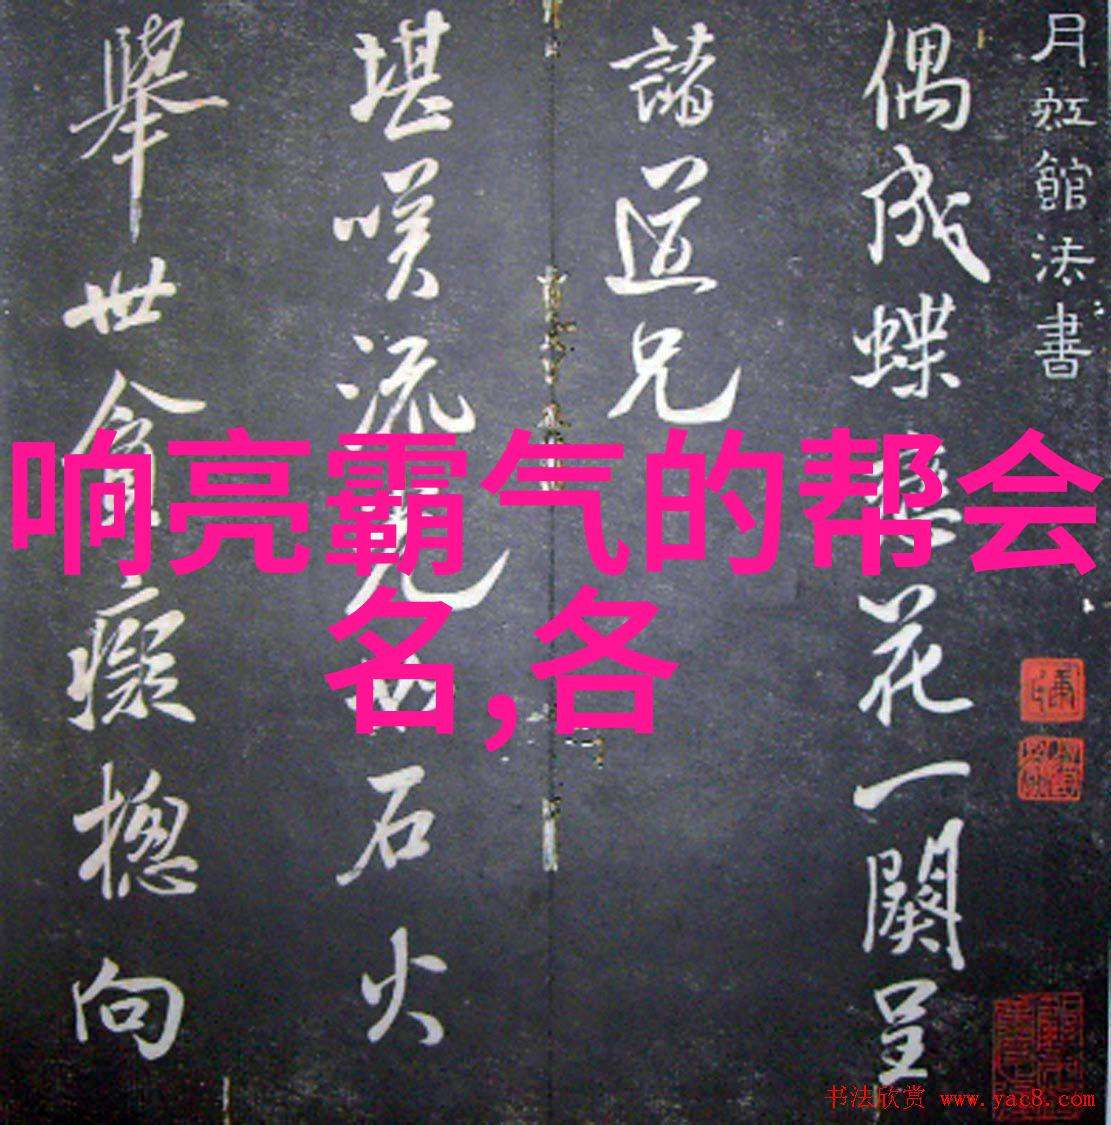 月虹館法書
偶成蝶戀花一闋呈
諸道兄
堪咲流光如石火
舉世貪癡摠向
响亮霸气的帮会
名,各
书法欣赏 www.yac8.com